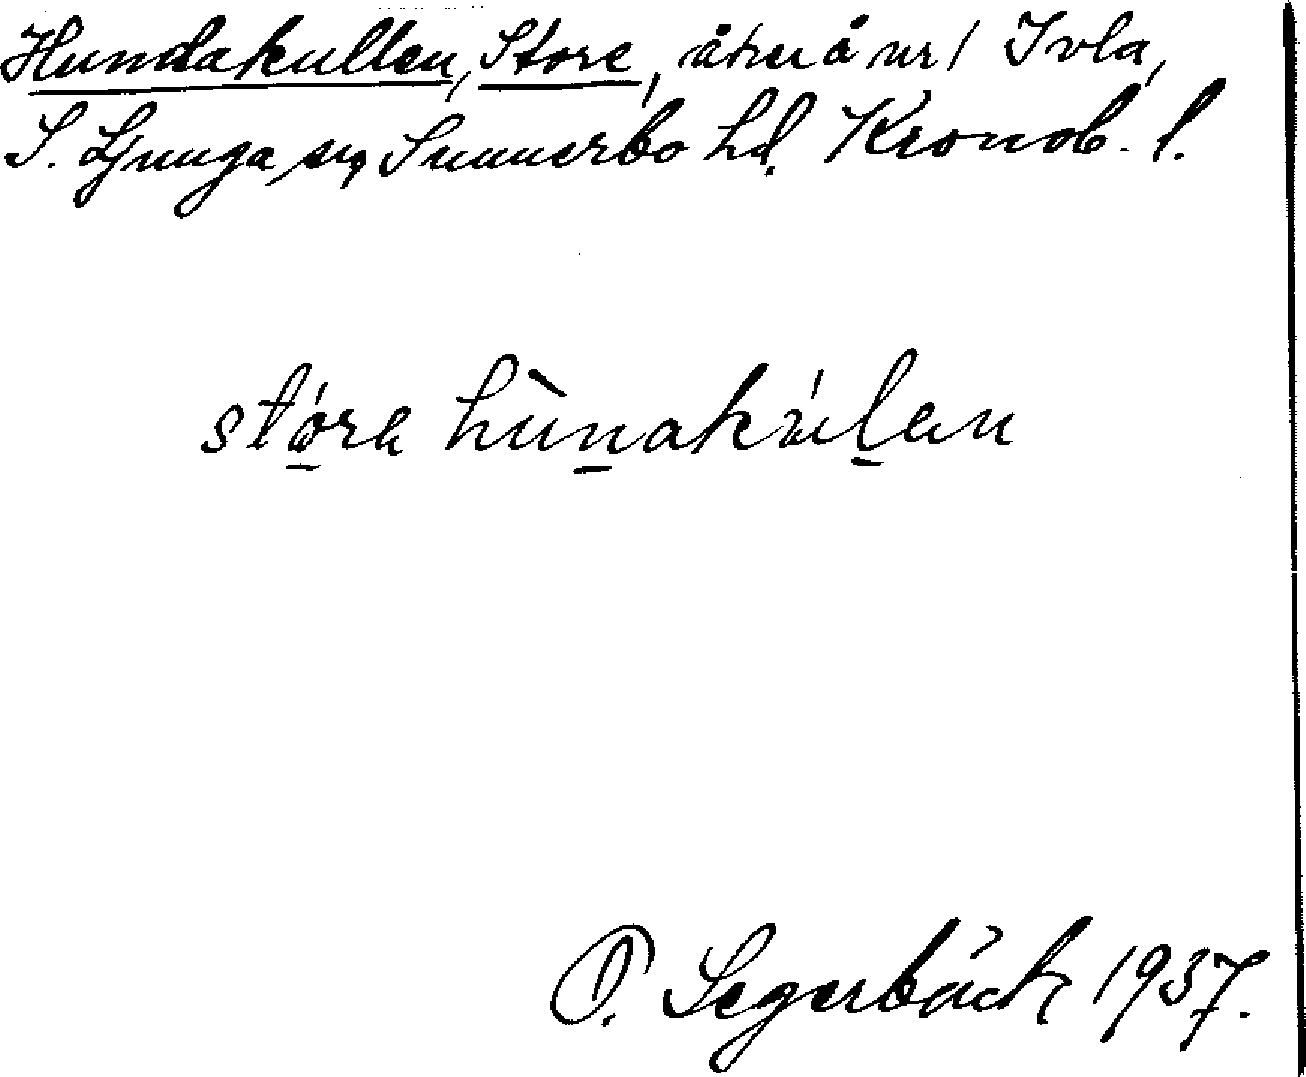 Hundakullen, Store, åker å nr 1 Ivla,
S. Ljunga sn, Sunnerbo hd. Kronob. l.
stóra hùnakúlen
O. Segerbäck 1937.